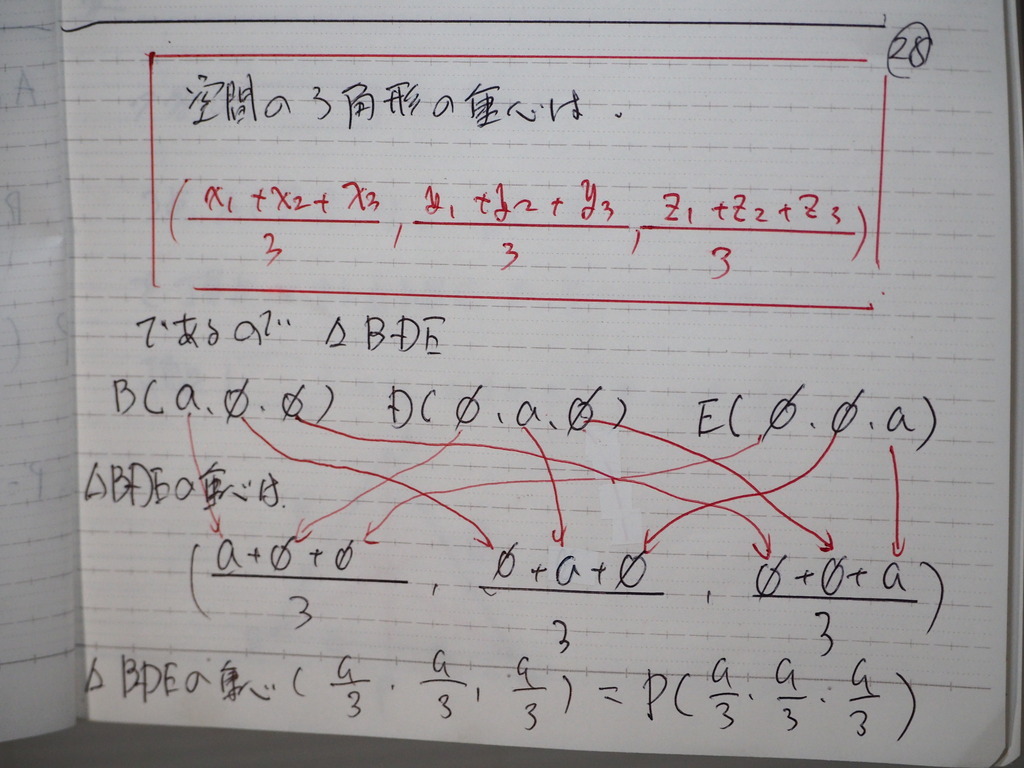 28
空間の3角形の重心は.
(x₁+x₂+x₃/3, y₁+y₂+y₃/3, z₁+z₂+z₃/3)
であるので △BDE
B(a.0.0) D(0.a.0) E(0.0.a)
△BDEの重心は.
(a+0+0/3, 0+a+0/3, 0+0+a/3)
△BDEの重心(a/3.a/3,a/3)=P(a/3.a/3.a/3)